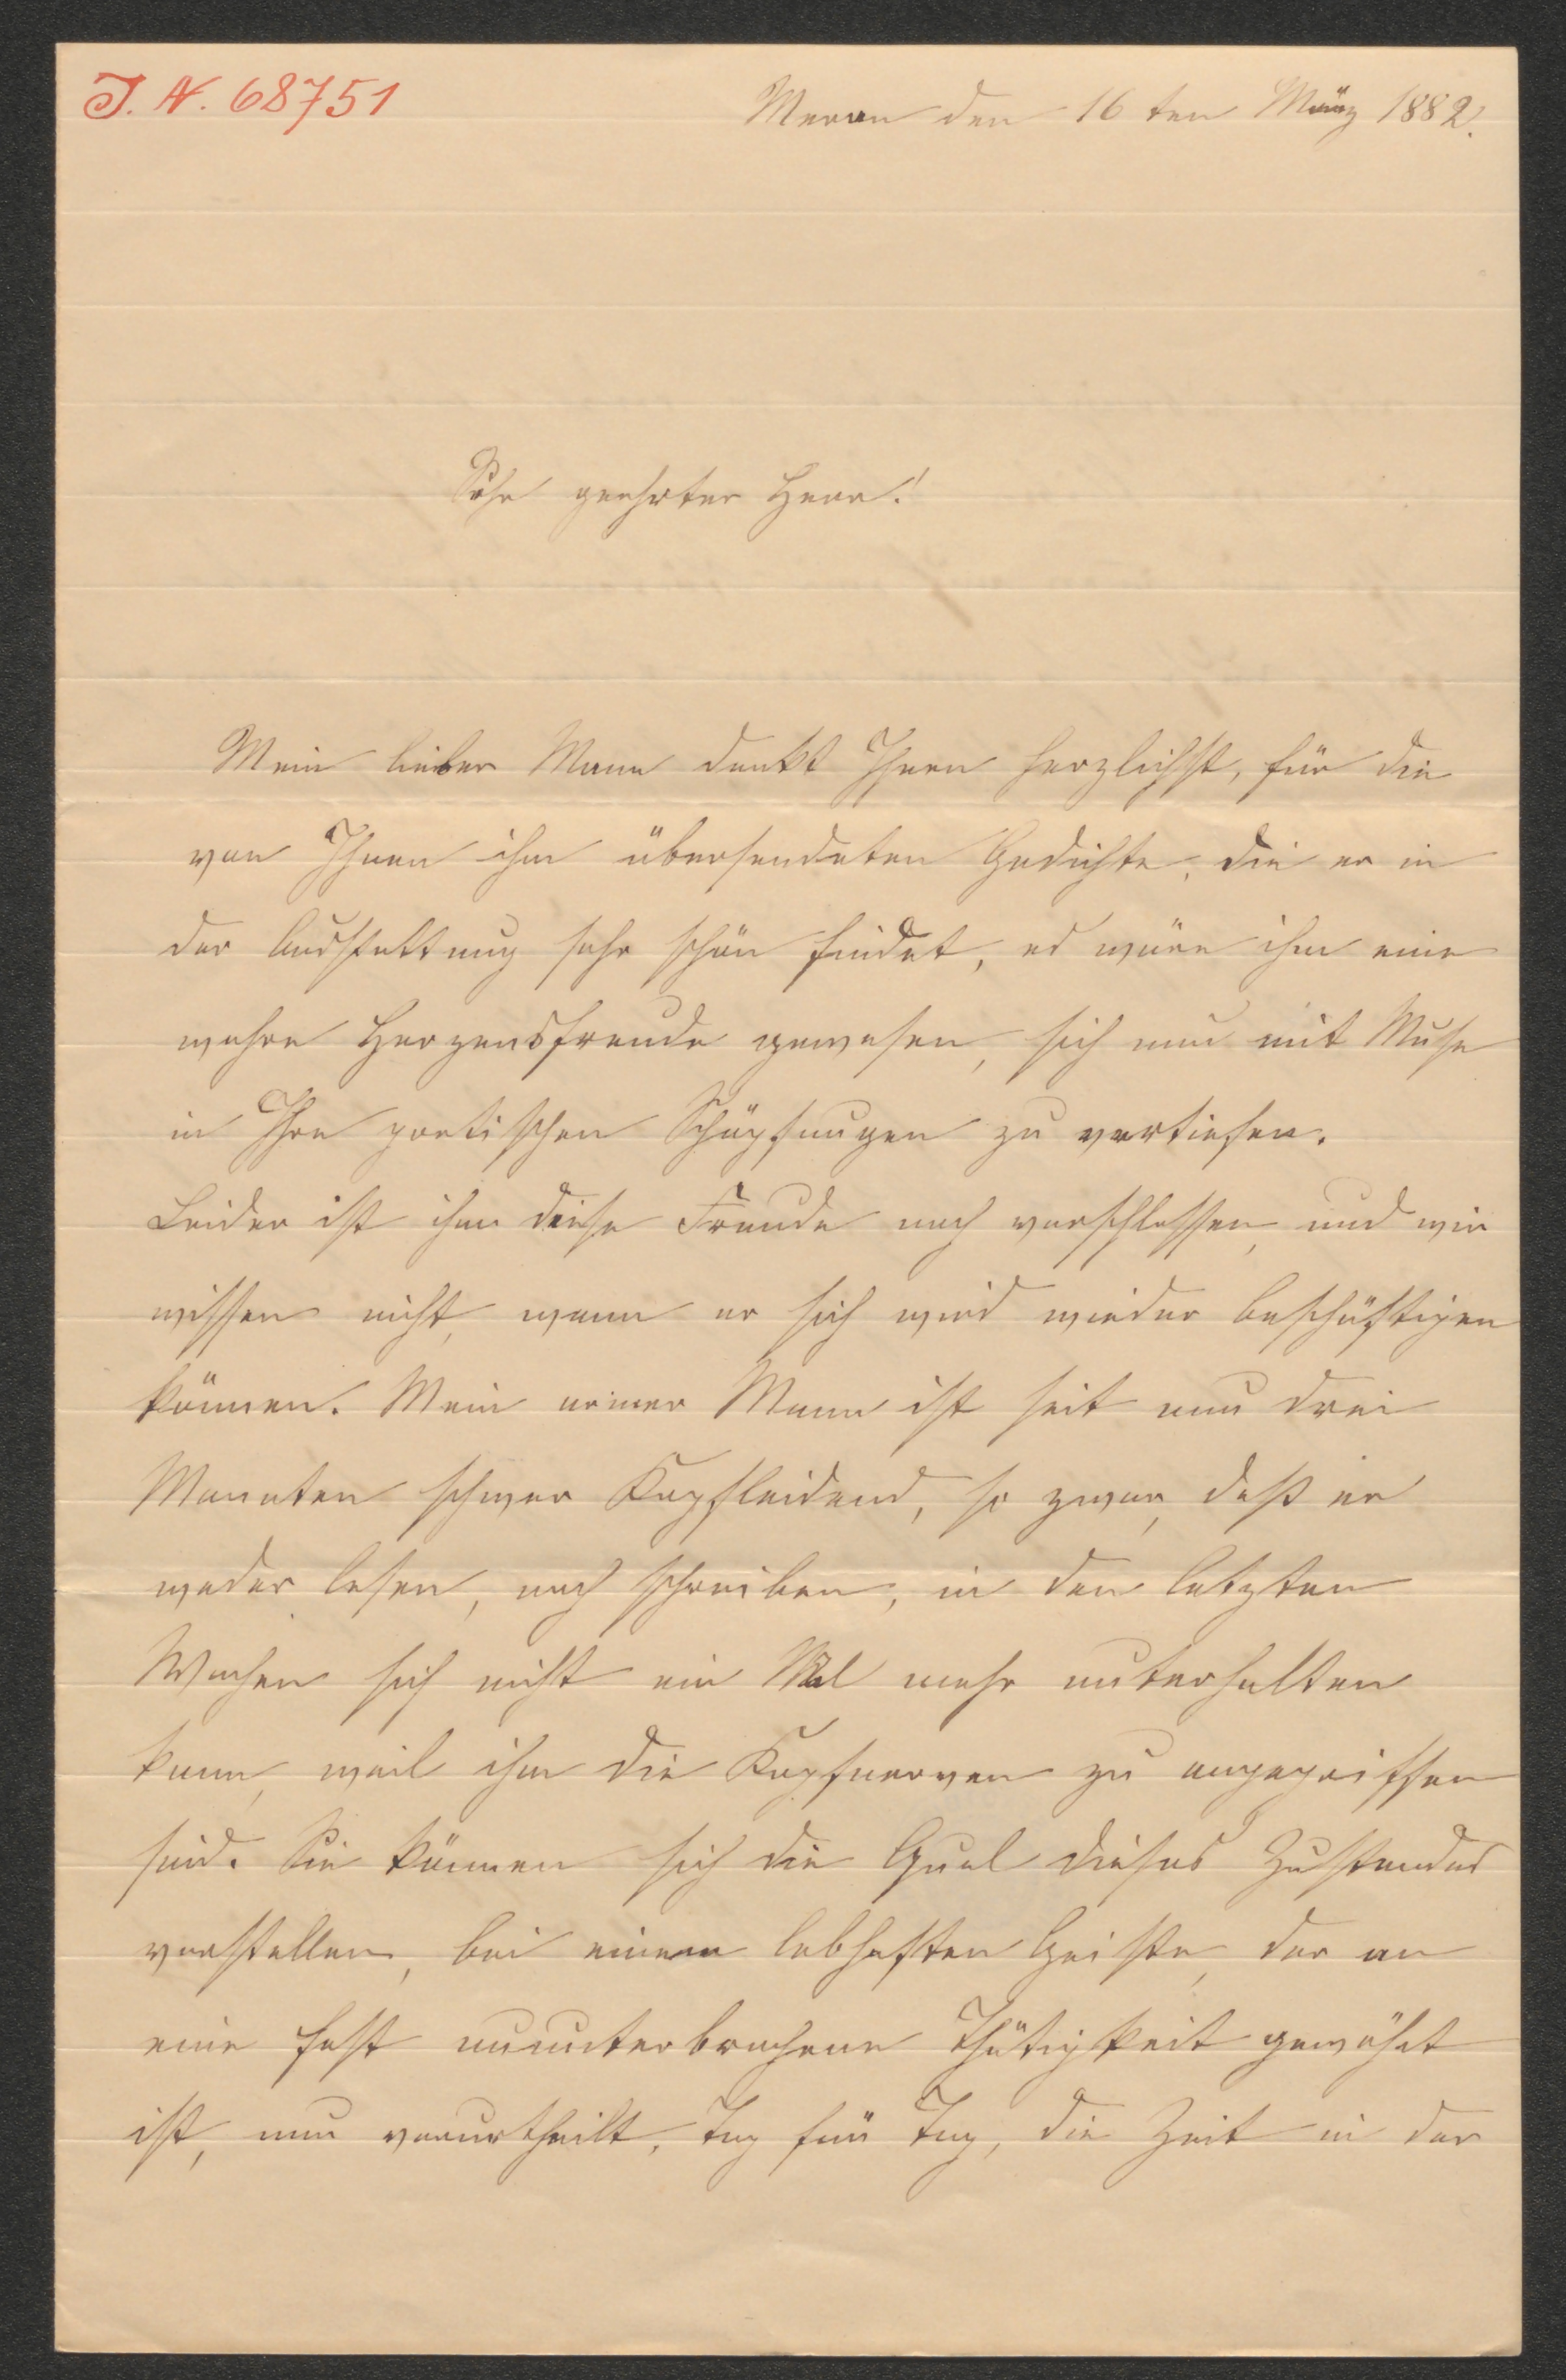 J. N. 68751
Meran den 16 ten März 1882.
Sehr geehrter Herr!
Mein lieber Mann dankt Ihnen herzlichst, für die
von Ihnen ihm übersendeten Gedichte, die er in
der Ausstattung sehr schön findet, es wäre ihm eine
wahre Herzensfreude gewesen, sich nun mit Muse
in Ihre poetischen Schöpfungen zu vertiefen.
Leider ist ihm diese Freude noch verschlossen, und wir
wissen nicht, wann er sich wird wieder beschäftigen
können. Mein armer Mann ist seit nun drei
Monaten schwer Kopfleidend, so zwar, daß er
weder lesen, noch schreiben, in den letzten
Wochen sich nicht ein Mal mehr unterhalten
kann, weil ihm die Kopfnerven zu angegriffen
sind. Sie können sich die Qual dieses Zustandes
vorstellen, bei einem lebhaften Geiste, der an
eine fast ununterbrochene Thätigkeit gewöhnt
ist, nun verurtheilt, Tag für Tag, die Zeit in der